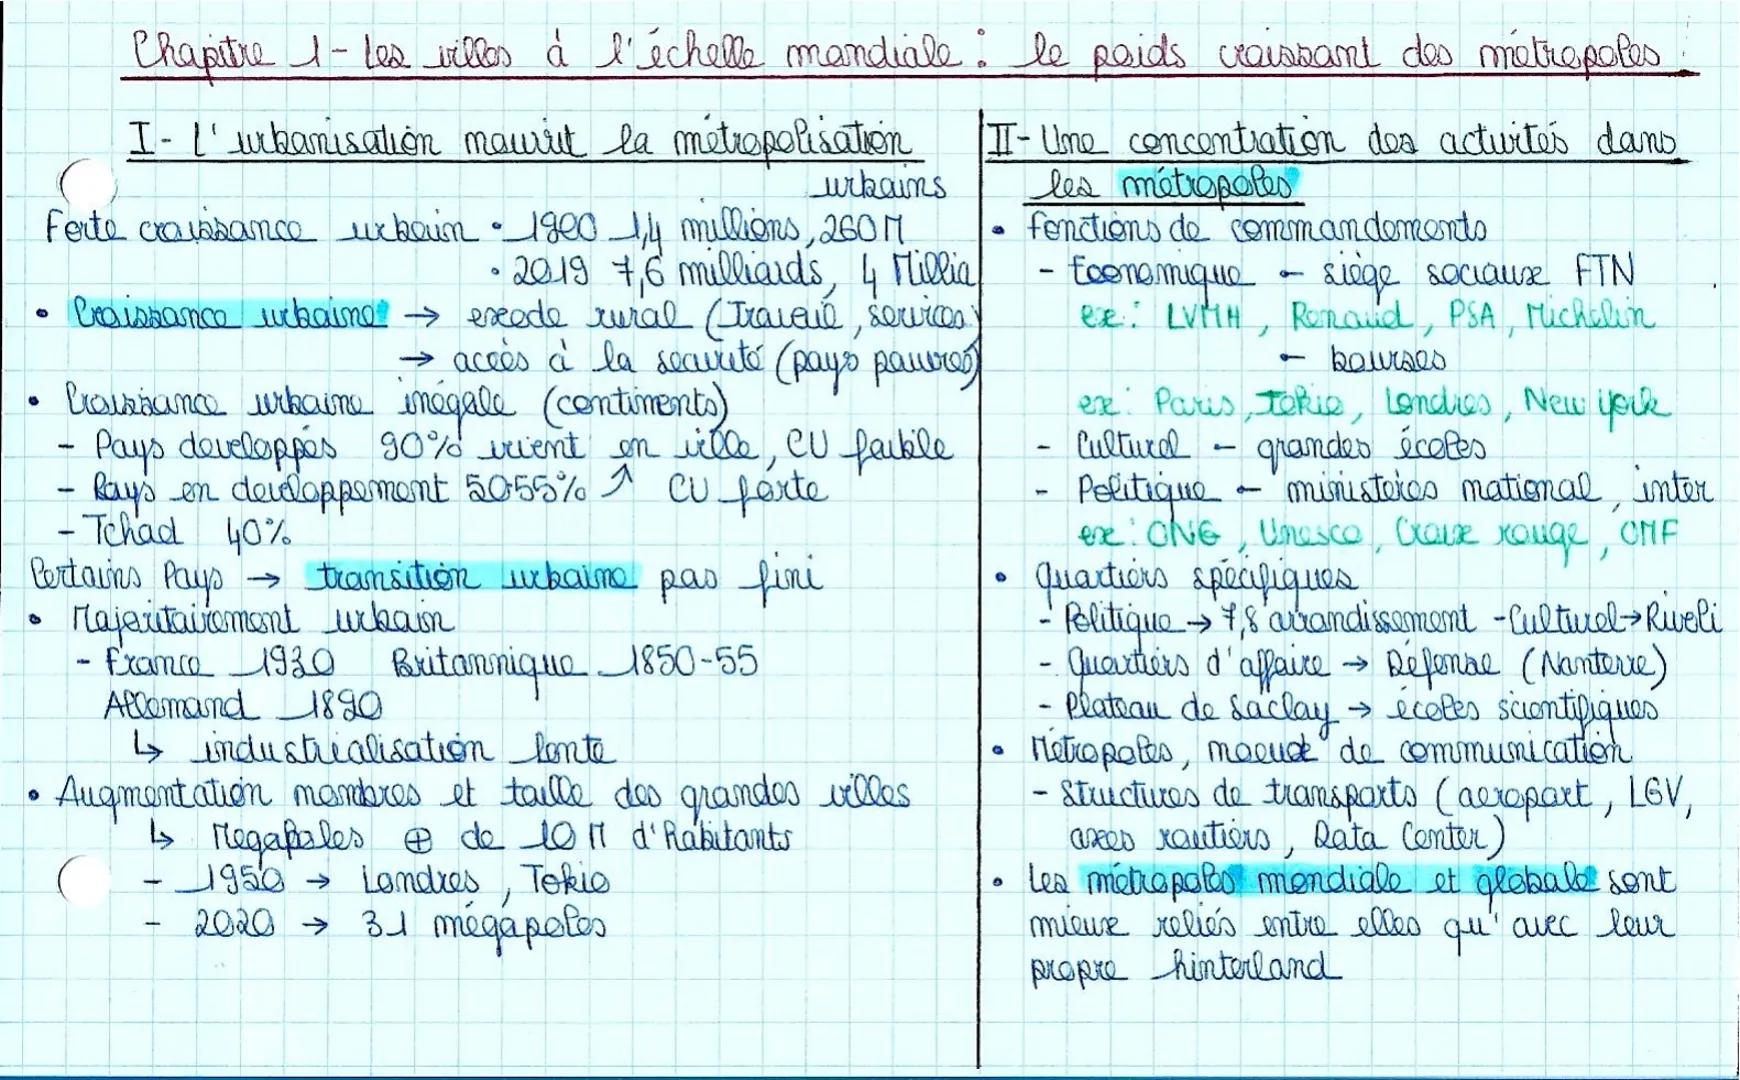 Chapitre 1 - Les villes à l'échelle mondiale : le poids croissant des métropoles
I - L'urbanisation nourrit la métropolisation
urbains
Forte croissance urbain • 1900 1,4 millions, 260 M
• 2019 7,6 milliards, 4 Millia
• Croissance urbaine → exode rural (Travail, services)
→ accès à la securité (pays pauvres)
• Croissance urbaine inégale (continents)
- Pays developpés 90% vivent en ville, CU faible
- Pays en developpement 50-55% ↗ CU forte
- Tchad 40%
Certains Pays → transition urbaine pas fini
• Majoritairement urbain
- France 1930 Britannique 1850-55
Allemand 1890
↳ industrialisation lente
• Augmentation nombres et taille des grandes villes
↳ Megapoles ⊕ de 10 M d'habitants
- 1950 → Londres, Tokio
- 2020 → 31 mégapoles
II - Une concentration des activités dans
les métropoles
• fonctions de commandements
- Economique - siège sociaux FTN
ex : LVMH, Renaud, PSA, Michelin
- bourses
ex : Paris, Tokio, Londres, New york
- Culturel - grandes écoles
- Politique - ministères national, inter
ex : ONG, Unesco, Croix rouge, OMF
• quartiers spécifiques
- Politique → 7,8 arrondissement - Culturel → Rivoli
- Quartiers d'affaire → Défense (Nanterre)
- Plateau de Saclay → écoles scientifiques
• Métropoles, noeud de communication
- Structures de transports (aeroport, LGV,
axes routiers, Data Center)
• Les métropoles mondiale et globale sont
mieux reliés entre elles qu'avec leur
propre hinterland